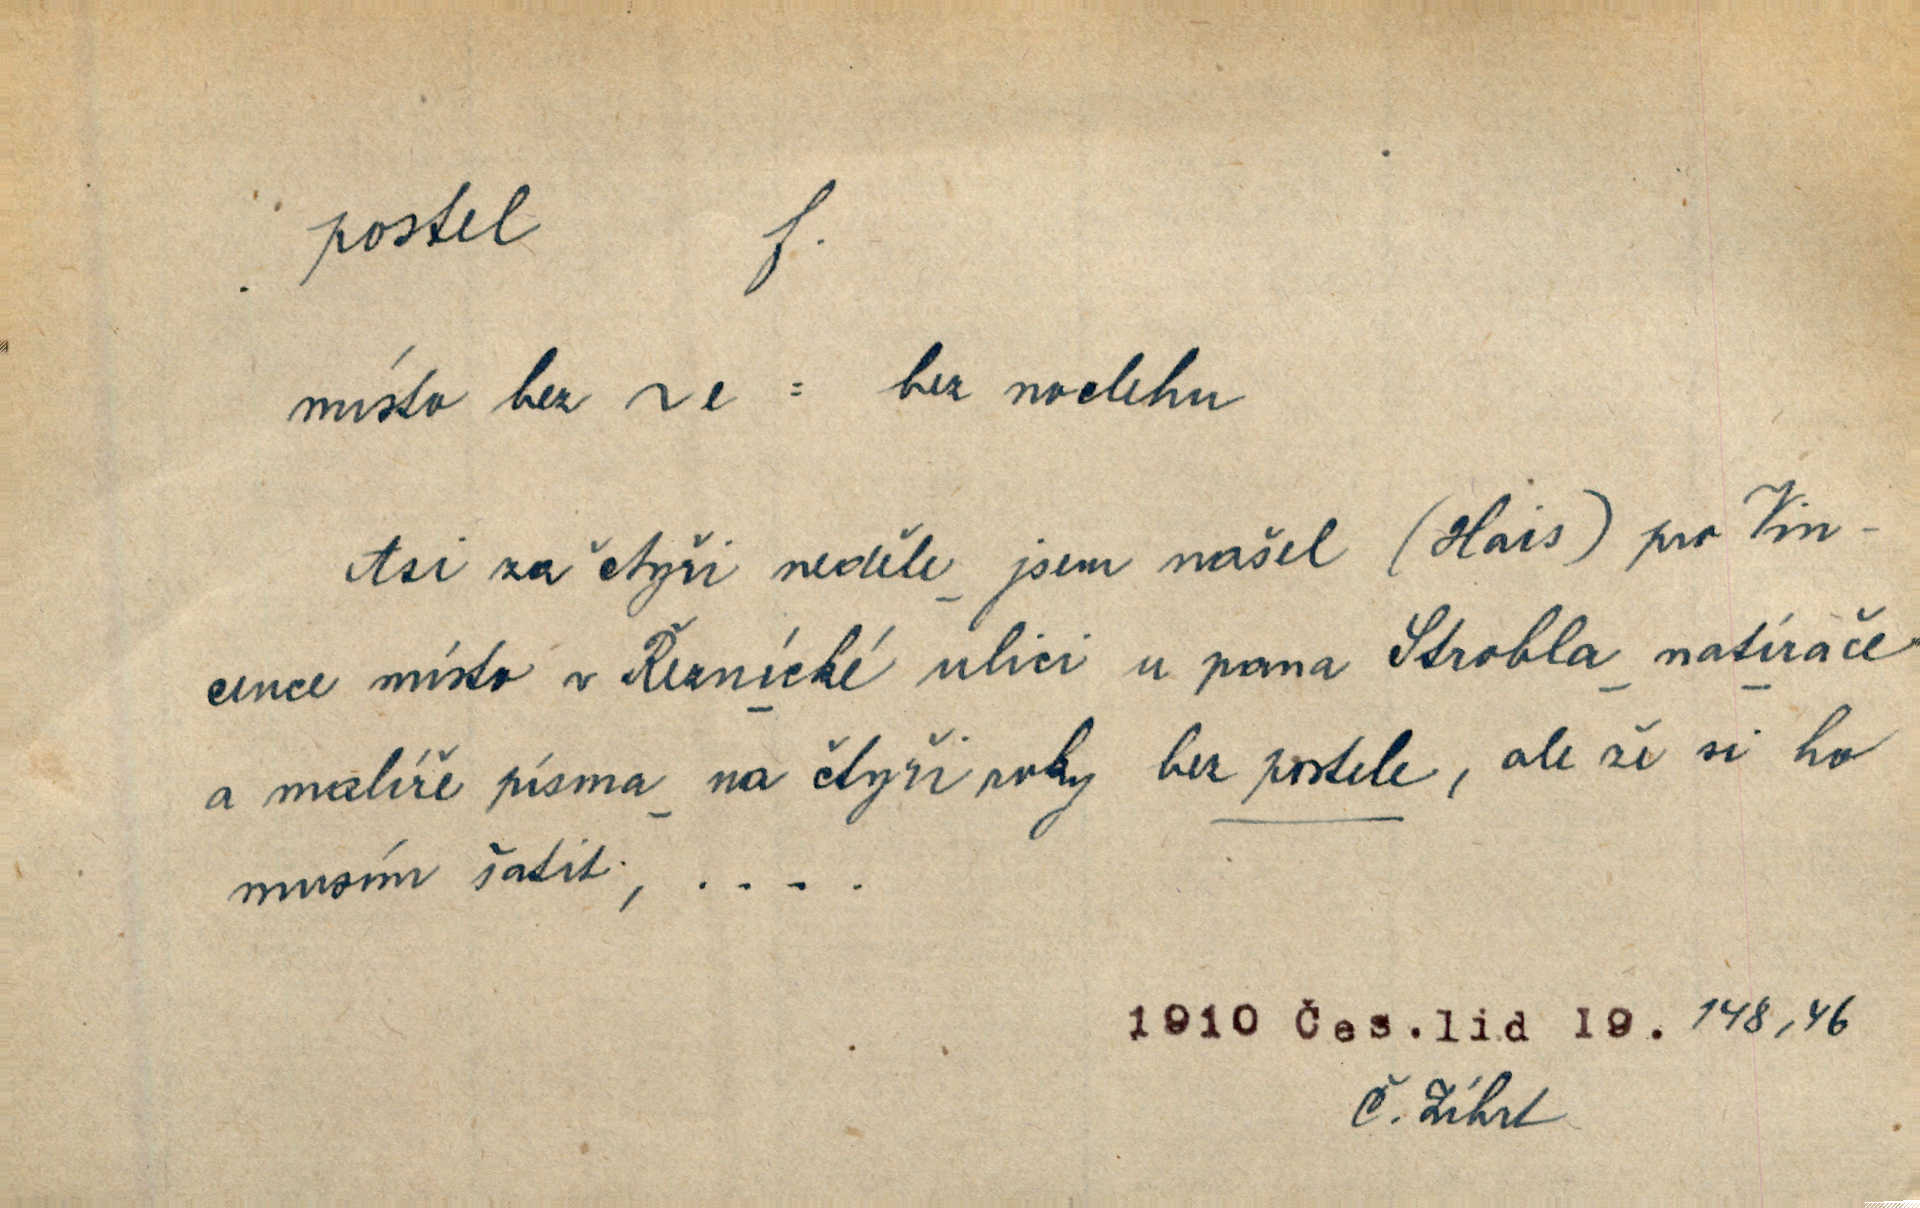 postel f.
místo bez ~e = bez noclehu
Asi za čtyři neděle jsem našel (Hais) pro Vin-
cence místo v Řeznické ulici u pana Strobla natírače
a malíře písma na čtyři roky bez postele, ale že si ho
musím šatit, . . . .
1910 Čes.lid 19. 148,46
Č. Zíbrt